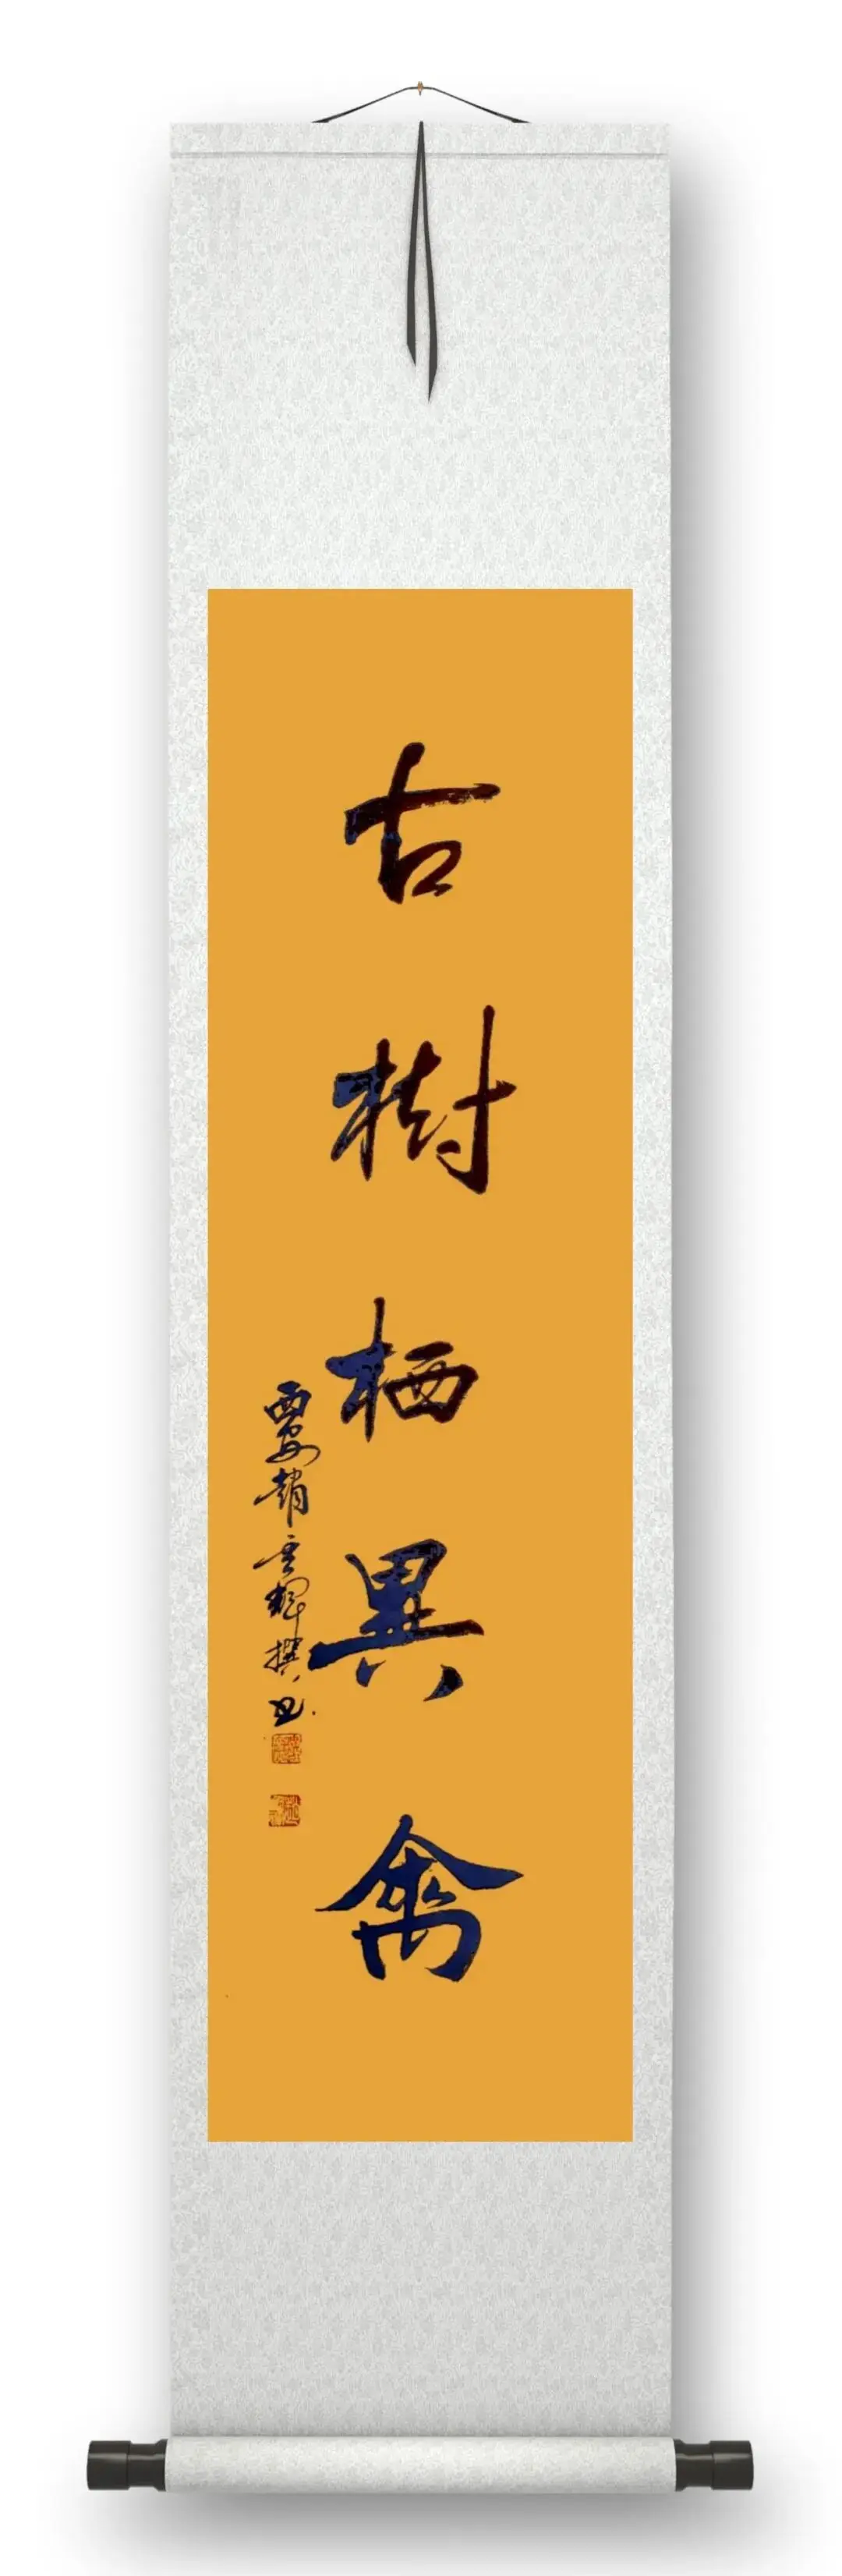 古樹栖異禽
西安趙雲輝撰書